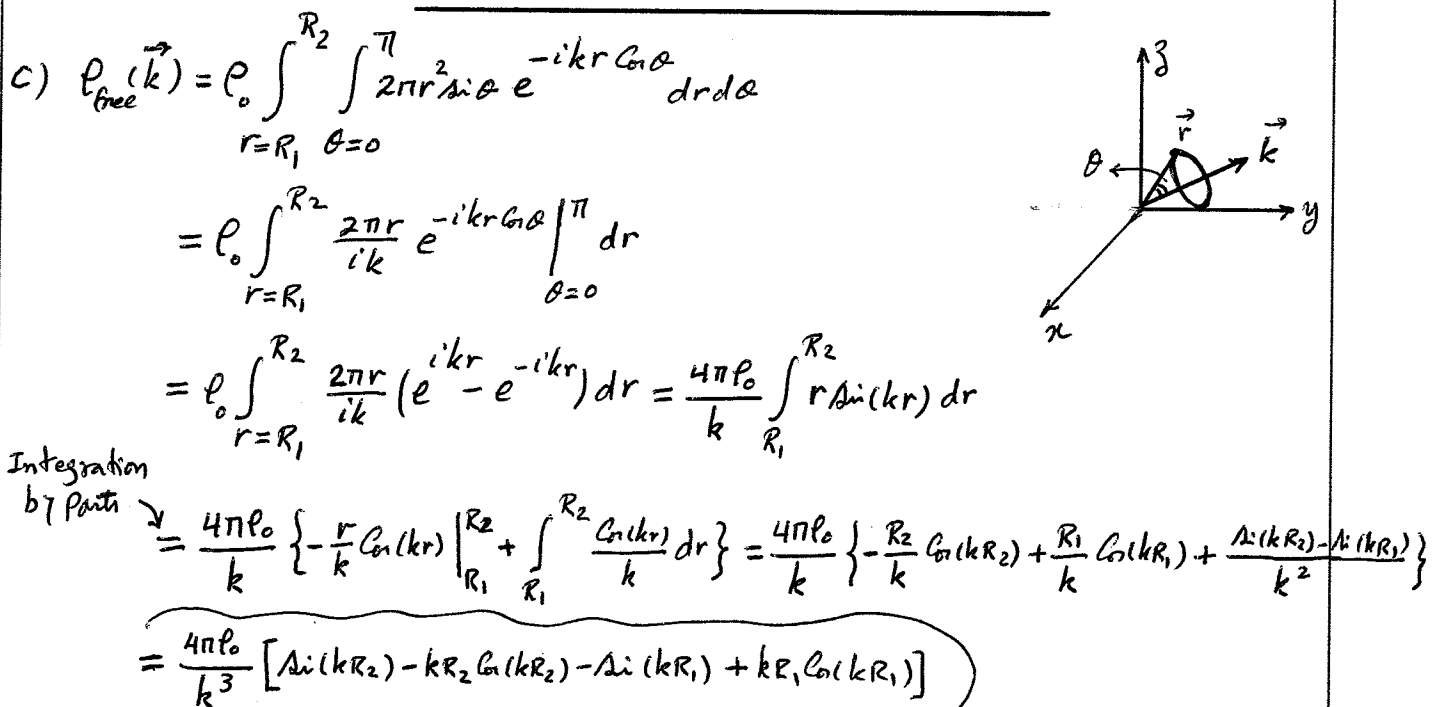 c) ρ_free(k⃗) = ρ₀ ∫_{r=R₁}^{R₂} ∫_{θ=0}^{π} 2πr² sin θ e^{-ikr Cos θ} dr dθ
= ρ₀ ∫_{r=R₁}^{R₂} 2πr/ik e^{-ikr Cos θ} |_{θ=0}^{π} dr
= ρ₀ ∫_{r=R₁}^{R₂} 2πr/ik (e^{ikr} - e^{-ikr}) dr = 4πρ₀/k ∫_{R₁}^{R₂} r Sin(kr) dr
Integration
by Parts
= 4πρ₀/k {-r/k Cos(kr) |_{R₁}^{R₂} + ∫_{R₁}^{R₂} Cos(kr)/k dr} = 4πρ₀/k {-R₂/k Cos(kR₂) + R₁/k Cos(kR₁) + (Sin(kR₂) - Sin(kR₁))/k²}
= 4πρ₀/k³ [Sin(kR₂) - kR₂ Cos(kR₂) - Sin(kR₁) + kR₁ Cos(kR₁)]
z
r⃗
k⃗
θ
y
x